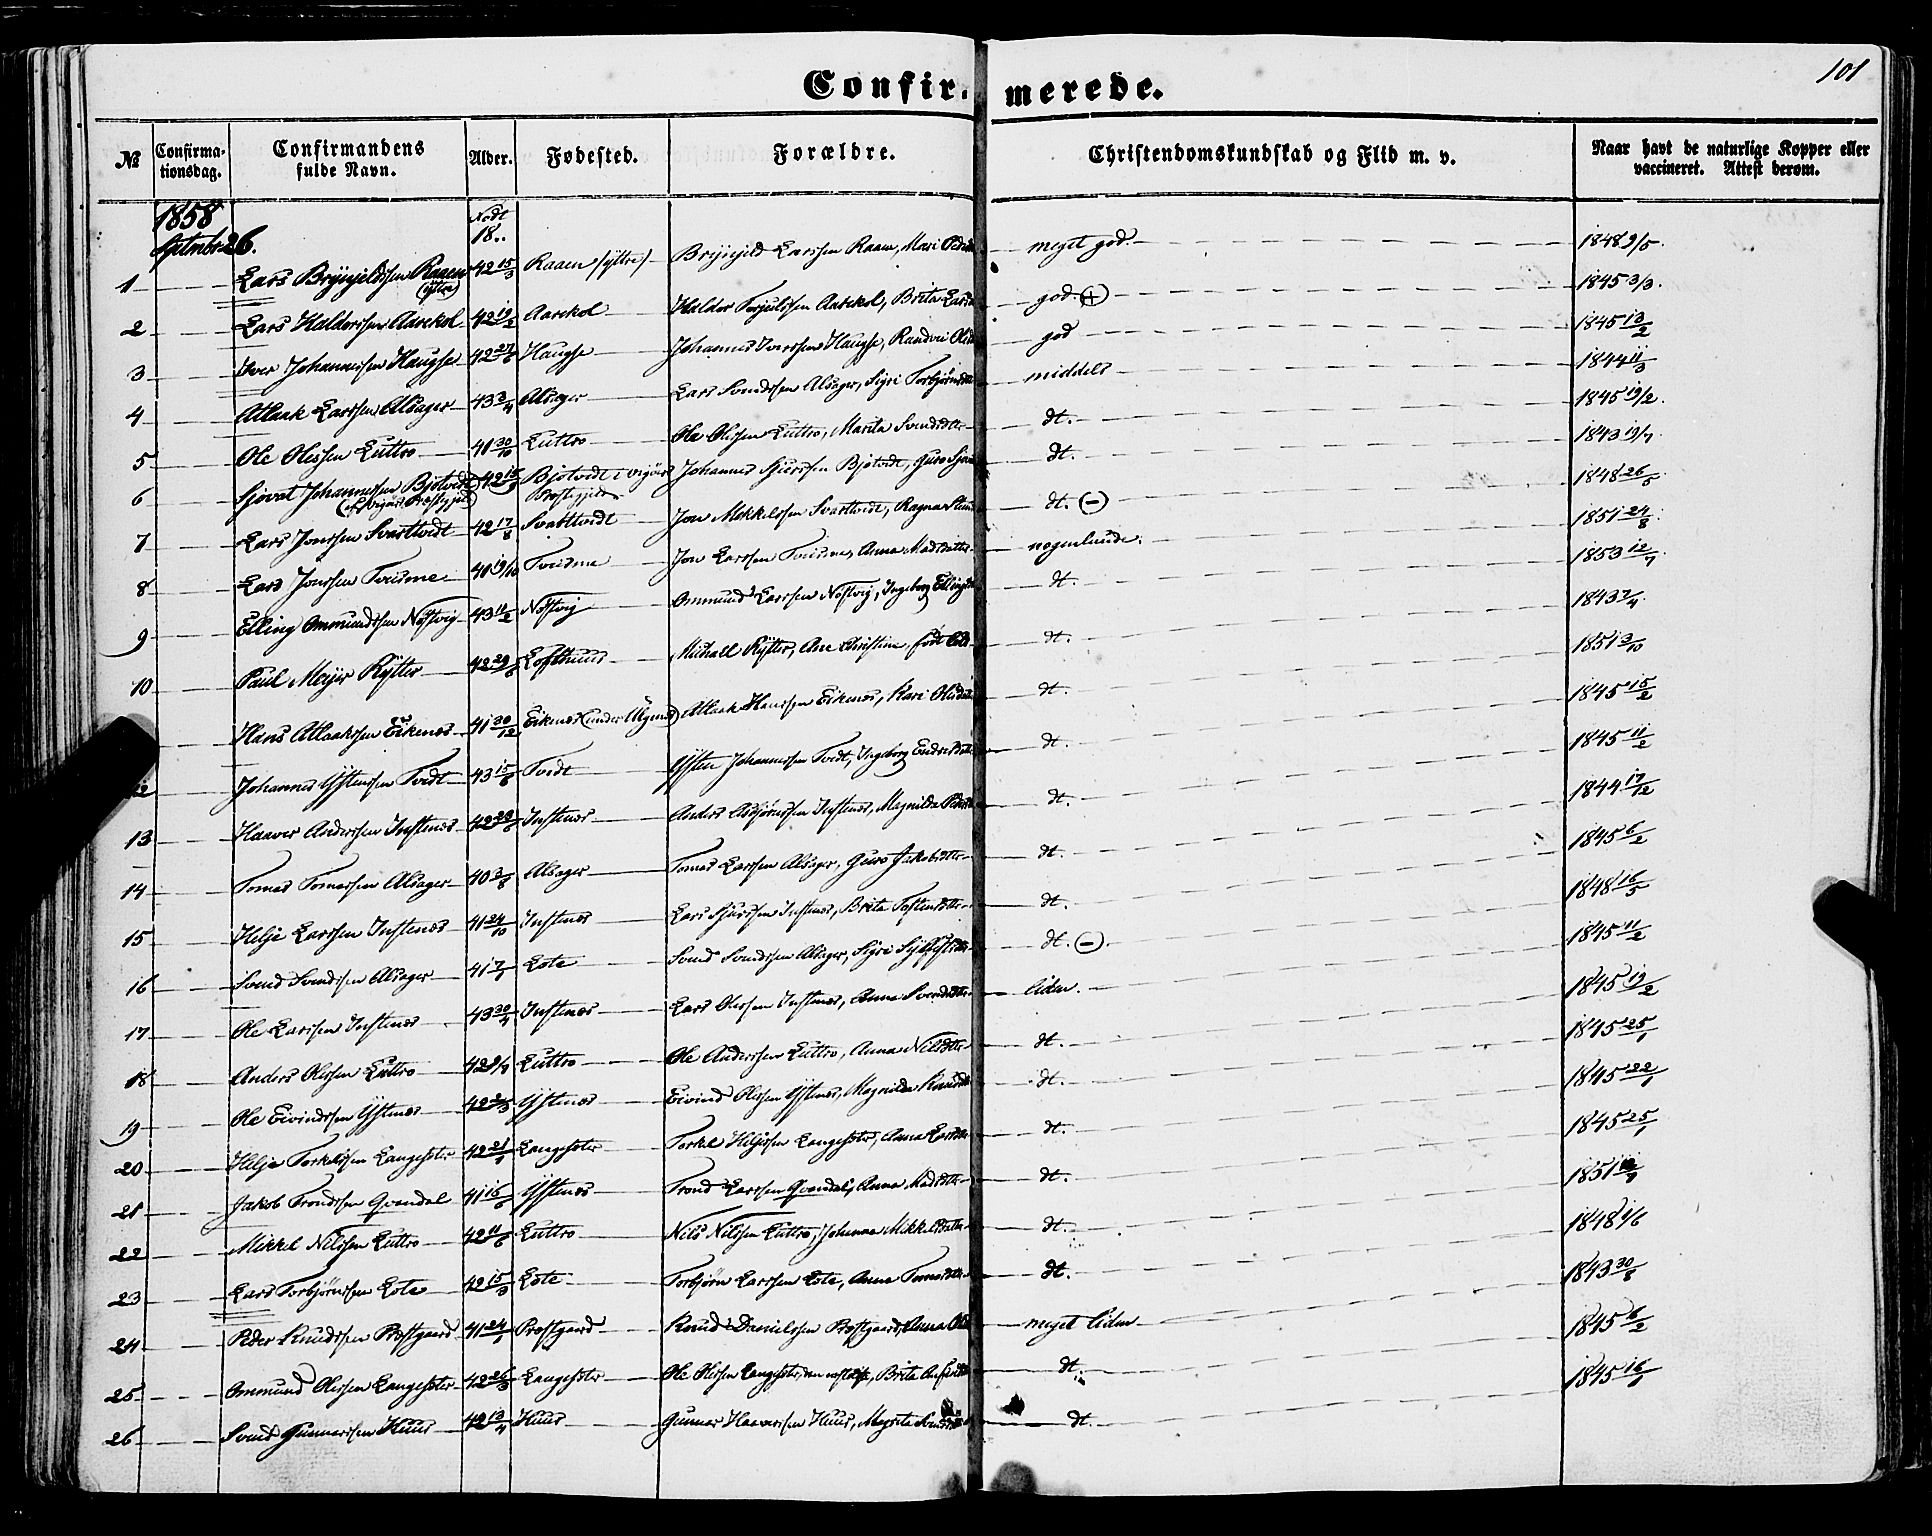 101
Confirmerede.
№ Confirmationsdag. Confirmandens fulde Navn. Alder. Fødested. Forældre. Christendomskundskab og Flid m. v. Naar havt de naturlige Kopper eller vaccineret. Attest derom.
1858 Septembr 26. Født 18..
1 Lars Brynjeldssen Raaen (yttre) 42 15/3 Raaen (yttre) Brynjeld Larssen Raaen, Mari meget god. 1848 9/5.
2 Lars Haldorssen Aarekol 42 19/2 Aarekol Haldor Torjulssen Aarekol, Brita god. (+) 1845 3/3.
3 Iver Johannessen Haugse 42 27/6 Haugse Johannes Iverssen Haugse, Randvei god 1845 13/2
4 Atlaak Larssen Alsager 43 3/4 Alsager Lars Svendssen Alsager, Sigri middels 1844 11/3
5 Ole Olessen Luttro 41 30/10 Luttro Ole Olessen Luttro, Marita Svendsdtr dt. 1845 19/2.
6 Sjovat Johannessen Bjotvedt (af Vigørs Præstegjeld) 42 15/9 Bjotvedt i Vigørs Præstegjeld Johannes Sjurssen Bjotvedt, Guro dt. 1843 19/7
7 Lars Jonssen Svarttvedt 42 17/8 Svarttvedt Jon Mekkelssen Svarttvedt, Ragna dt. (-) 1848 26/5
8 Lars Jonssen Tveisme 41 19/10 Tveisme Jon Larssen Tveisme, Anna Madsdatter nogenlunde. 1851 24/8.
9 Elling Ommundssen Nøstvig 43 11/2 Nøstvig Ommund Larssen Nøstvig, Ingeborg dt. 1853 12/7.
10 Paul Meyer Rytter 42 29/6 Lofthuus Michall Rytter, Ane Christine, født dt. 1843 7/4.
Hans Atlaakssen Eikenæs 41 30/12 Eikenæs (under Algenæs) Atlaak Hanssen Eikenæs, Kari dt. 1851 3/10
12 Johannes Ystenssen Tvedt 43 15/6 Tvedt Ysten Johannessen Tvedt, Ingeborg Endresdatter dt. 1845 15/2
13 Haaver Anderssen Instenæs 42 28/6 Instenæs Anders Asbjørnssen Instenæs, Magnilda dt. 1845 11/2
14 Tomas Tomassen Alsager 40 3/8 Alsager Tomas Larssen Alsager, Guro Jakobsdtr dt. 1844 17/12
15 Helje Larssen Instenæs 41 24/10 Instenæs Lars Sjurssen Instenæs, Brita Tostensdtr dt. 1845 6/2
16 Svend Svendssen Alsager 41 7/1 Lote Svend Svendssen Alsager, Sigri dt. (-). 1848 16/5
17 Ole Larssen Instenæs 43 30/4 Instenæs Lars Olessen Instenæs, Anna Svendsdtr liden. 1845 11/2
18 Anders Olessen Luttro 42 9/7 Luttro Ole Anderssen Luttro, Anna Nilsdtr dt. 1845 19/2
19 Ole Eivindssen Ystenæs 42 2/3 Ystenæs Eivind Olessen Ystenæs, Magnilda dt. 1845 25/1
20 Helje Torkelssen Langesæter 42 21/7 Langesæter Torkel Heljessen Langesæter, Anna dt. 1845 22/1
21 Jakob Trondssen Qvendal 41 16/6 Ystenæs Trond Larssen Qvendal, Anna Madsdtr dt. 1845 25/1
22 Mikkel Nilssen Luttro 42 11/6 Luttro Nils Nilssen Luttro, Johanna Mikkelsdatter dt. 1851
23 Lars Torbjørnssen Lote 42 15/3 Lote Torbjørn Larssen Lote, Anna Tomasdtr dt. 1848 1/6
24 Peder Knudssen Præstgaard 41 24/1 Præstgaard Knud Danielssen Præstgaard, Anna meget liden 1843 30/8
25 Ommund Olessen Langesæter 42 26/3 Langesæter Ole Olessen Langesæter, Brita dt. 1845 6/2
26 Svend Gunnarssen Huus 42 13/4 Huus Gunnar Haaverssen Huus, dt. 1845 16/1